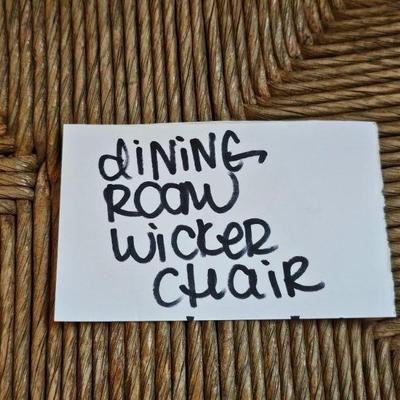 diNiNG
ROOM
WicKER
CHAiR